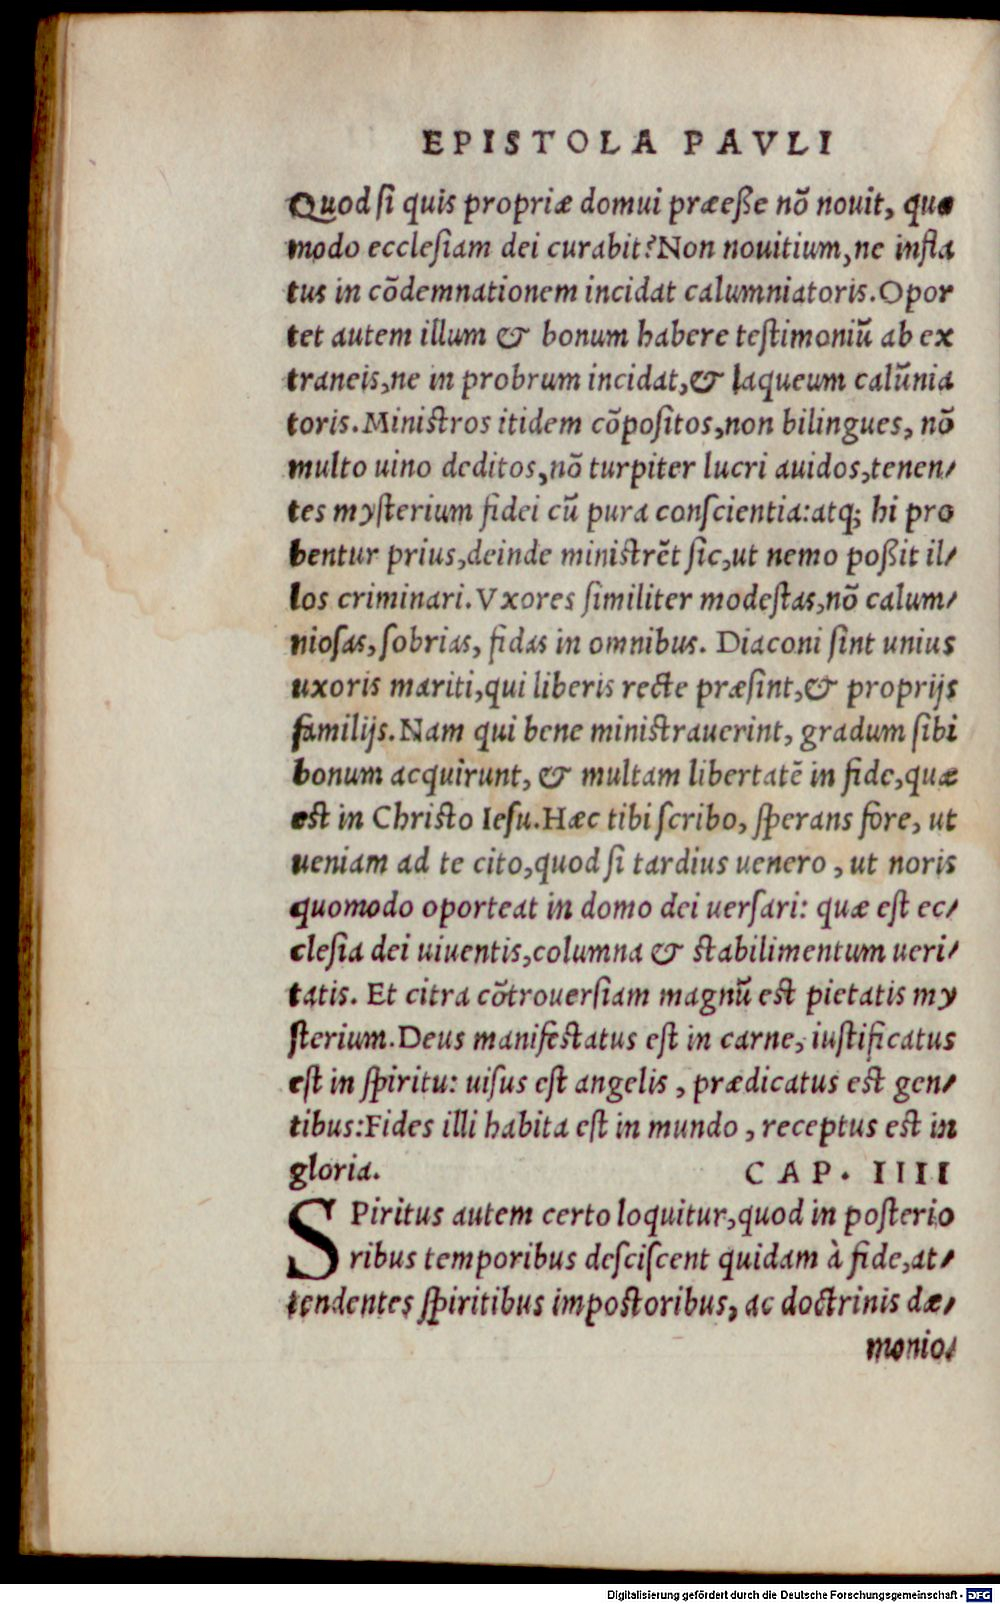 EPISTOLA PAVLI
Quod si quis propriæ domui præeße nõ nouit, quo
modo ecclesiam dei curabit? Non nouitium, ne infla
tus in cõdemnationem incidat calumniatoris. Opor
tet autem illum & bonum habere testimoniũ ab ex
traneis, ne in probrum incidat, & laqueum calũnia
toris. Ministros itidem cõpositos, non bilingues, nõ
multo uino deditos, nõ turpiter lucri auidos, tenen/
tes mysterium fidei cũ pura conscientia: atq; hi pro
bentur prius, deinde ministrẽt sic, ut nemo poßit il/
los criminari. Vxores similiter modestas, nõ calum/
niosas, sobrias, fidas in omnibus. Diaconi sint unius
uxoris mariti, qui liberis recte præsint, & proprijs
familijs. Nam qui bene ministrauerint, gradum sibi
bonum acquirunt, & multam libertatẽ in fide, quæ
est in Christo Iesu. Hæc tibi scribo, sperans fore, ut
ueniam ad te cito, quod si tardius uenero, ut noris
quomodo oporteat in domo dei uersari: quæ est ec/
clesia dei uiuentis, columna & stabilimentum ueri/
tatis. Et citra cõtrouersiam magnũ est pietatis my
sterium. Deus manifestatus est in carne, iustificatus
est in spiritu: uisus est angelis, prædicatus est gen/
tibus: Fides illi habita est in mundo, receptus est in
gloria. CAP. IIII
SPiritus autem certo loquitur, quod in posterio
ribus temporibus desciscent quidam à fide, at/
tendentes spiritibus impostoribus, ac doctrinis dæ/
monio/
Digitalisierung gefördert durch die Deutsche Forschungsgemeinschaft - DFG